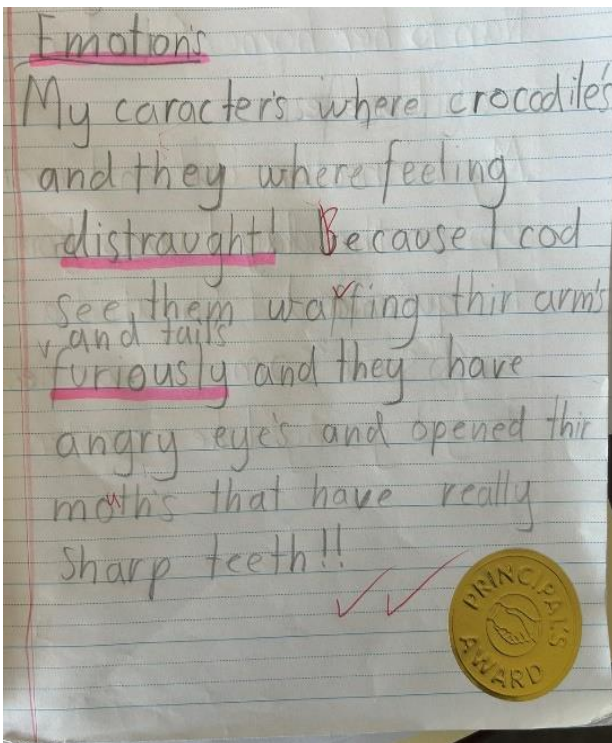 Emotion's
My caracter's where crocodile's
and they where feeling
distraught! Because I cod
see them waving thir arm's
and tail's
furiously and they have
angry eye's and opened thir
mouth's that have really
sharp teeth!!
PRINCIPAL'S
AWARD